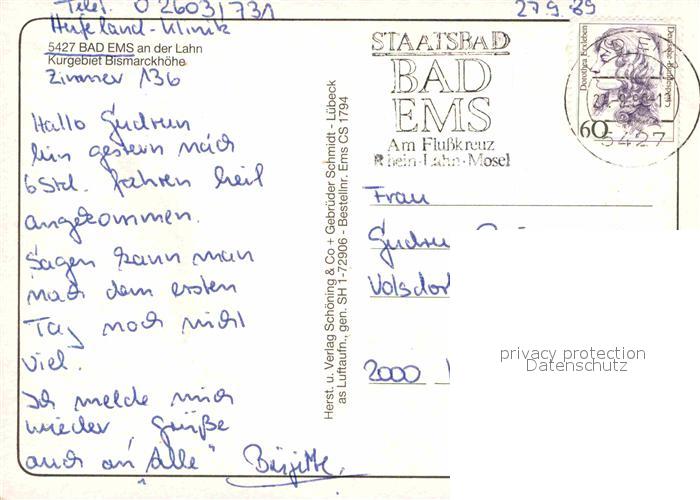 Telef. 02603/731
27.9.89
Hufeland-Klinik
5427 BAD EMS an der Lahn
Kurgebiet Bismarckhöhe
Zimmer 136
Hallo Gudrun
bin gestern nach
6 Std. fahren heil
angekommen.
Sagen kann man
nach dem ersten
Tag noch nicht
viel.
Ich melde mich
wieder, Grüße
auch an "Alle" Brigitte.
Herst. u. Verlag Schöning & Co + Gebrüder Schmidt - Lübeck
as Luftaufn., gen. SH 1-72906 - Bestellnr. Ems CS 1794
STAATSBAD
BAD
EMS
Am Flußkreuz
Rhein-Lahn-Mosel
Dorothea Erxleben
Deutsche Bundespost
60
5427
Frau
Volsdor
2000
privacy protection
Datenschutz